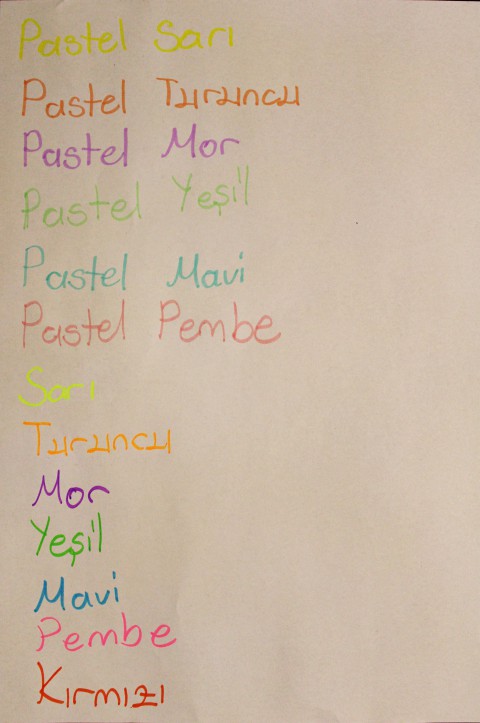 Pastel Sarı
Pastel Turuncu
Pastel Mor
Pastel Yeşil
Pastel Mavi
Pastel Pembe
Sarı
Turuncu
Mor
Yeşil
Mavi
Pembe
Kırmızı